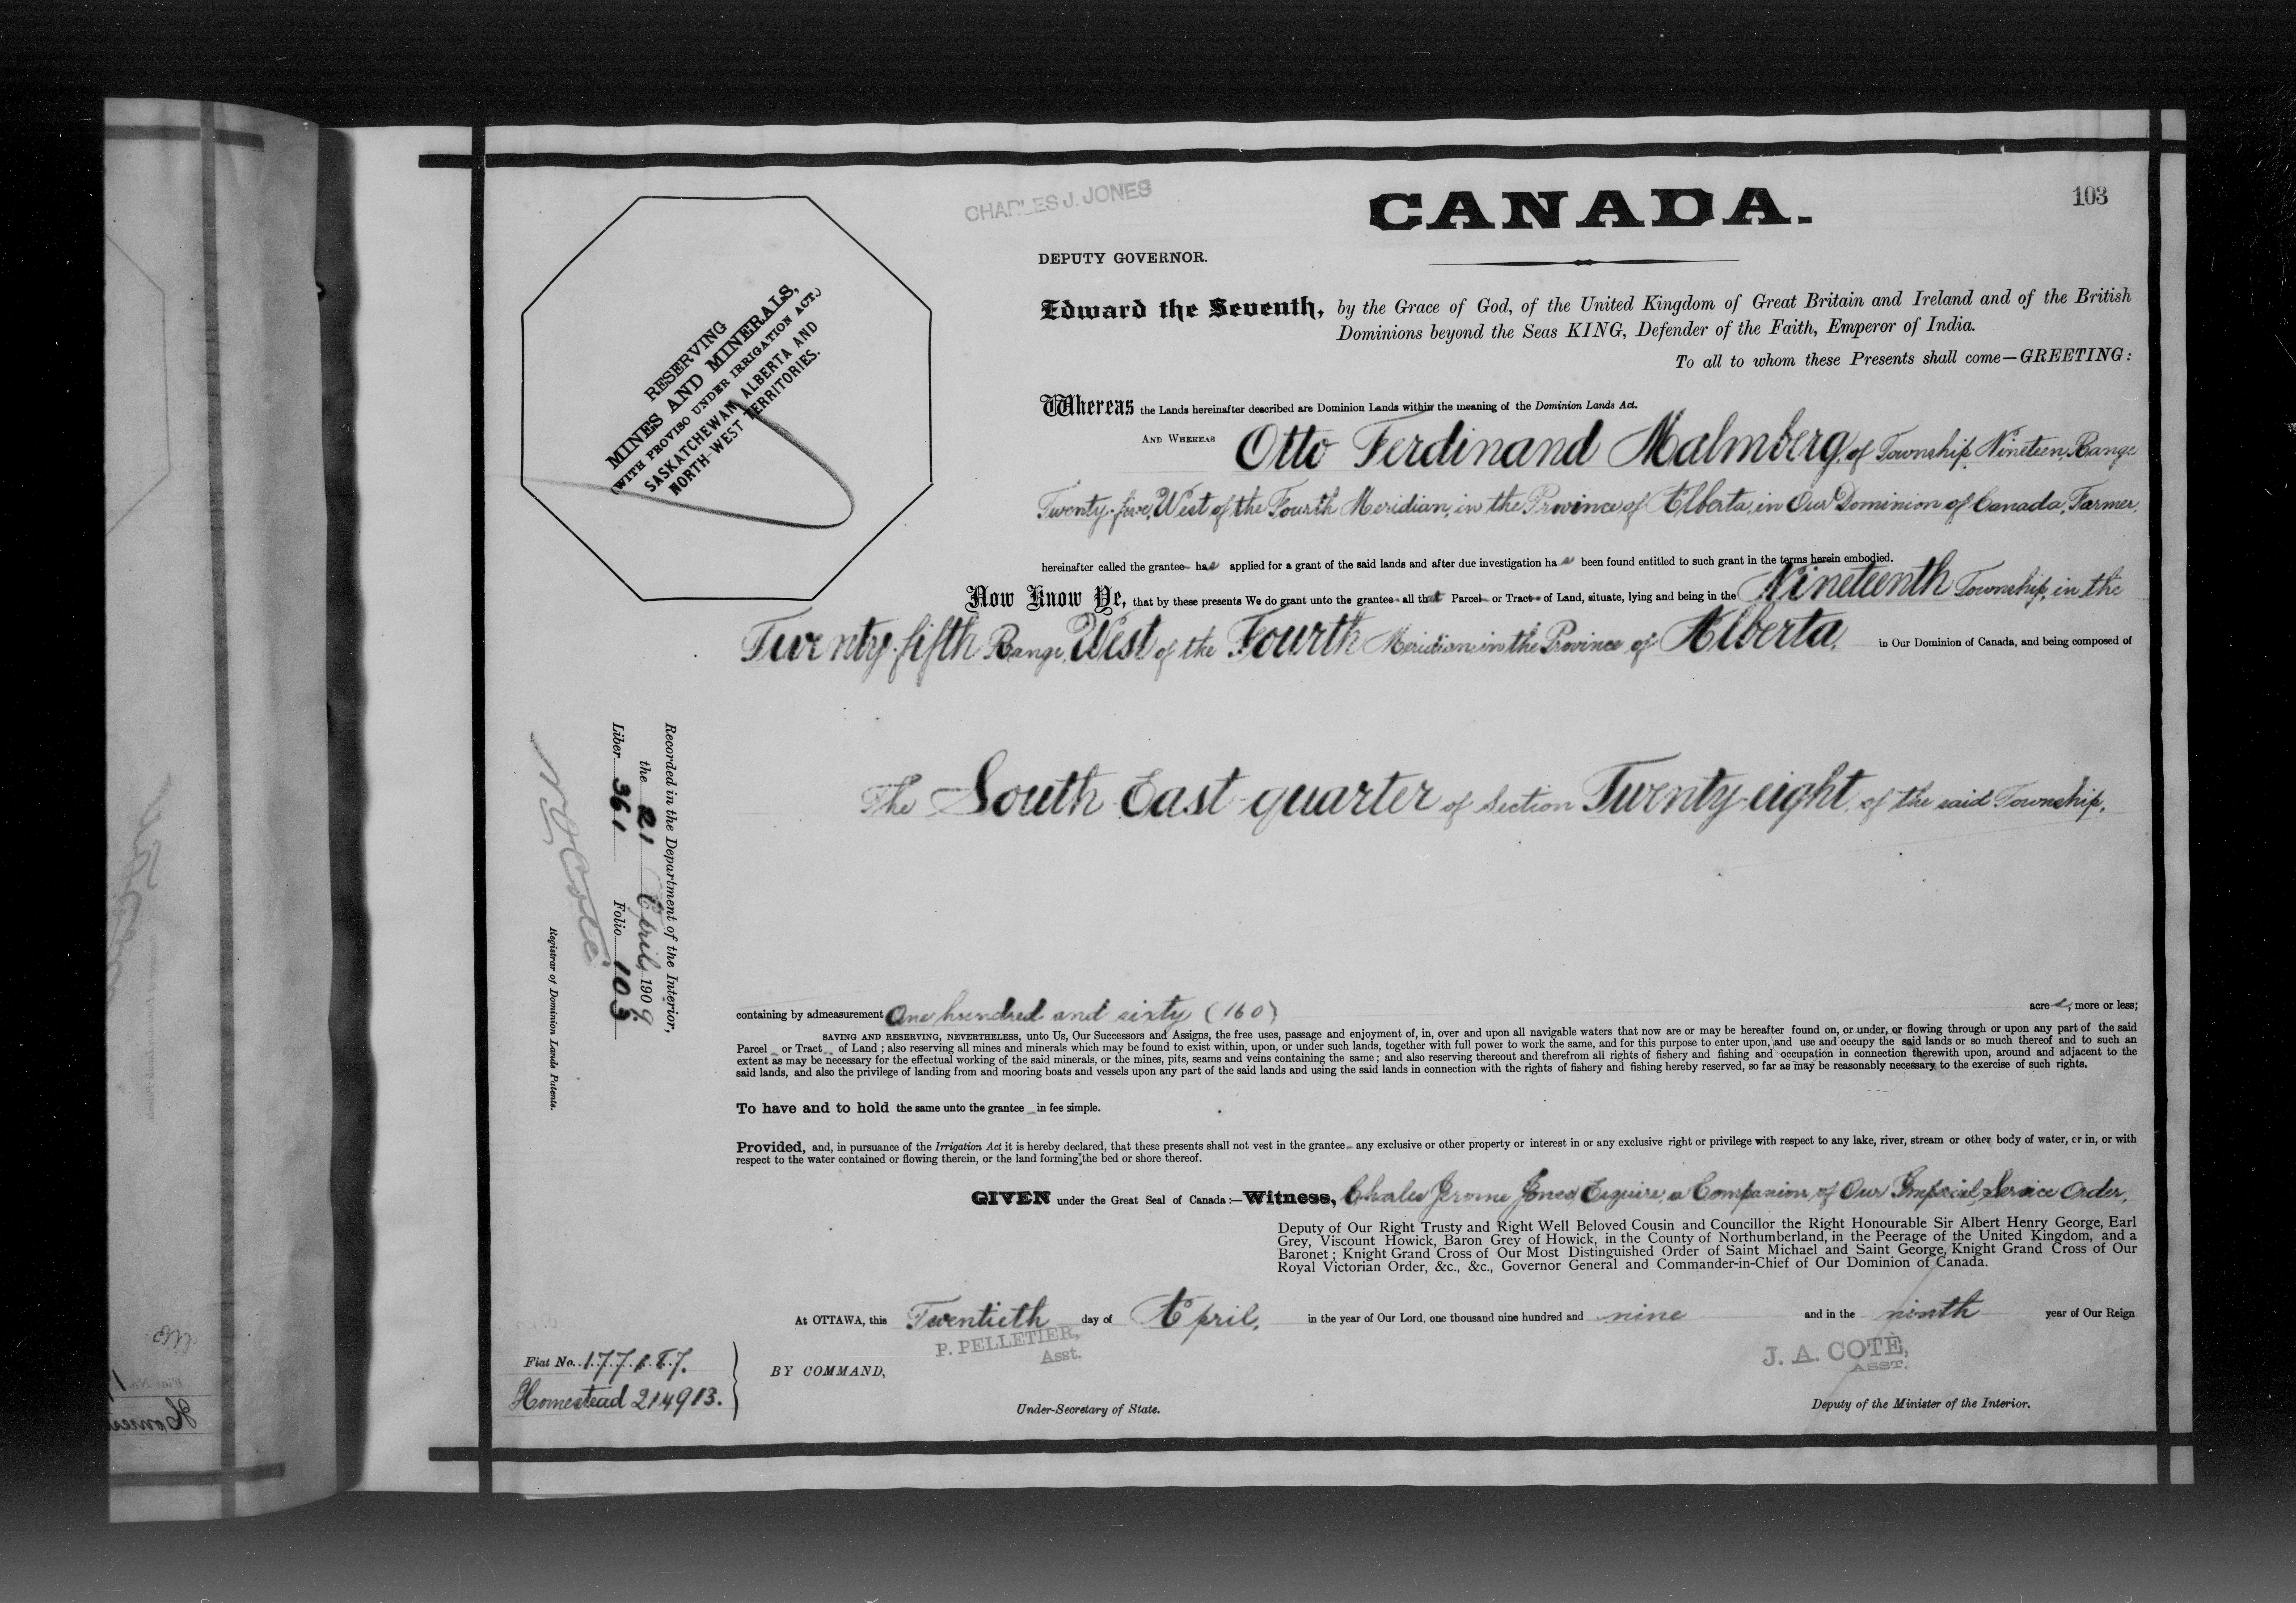 CHARLES J. JONES
CANADA.
103
DEPUTY GOVERNOR.
RESERVING
MINES AND MINERALS,
(WITH PROVISO UNDER IRRIGATION ACT.)
SASKATCHEWAN, ALBERTA AND
NORTH-WEST TERRITORIES.
Edward the Seventh, by the Grace of God, of the United Kingdom of Great Britain and Ireland and of the British
Dominions beyond the Seas KING, Defender of the Faith, Emperor of India.
To all to whom these Presents shall come—GREETING:
Whereas the Lands hereinafter described are Dominion Lands within the meaning of the Dominion Lands Act.
AND WHEREAS Otto Ferdinand Malmberg, of Township Nineteen, Range
Twenty-five, West of the Fourth Meridian, in the Province of Alberta, in Our Dominion of Canada, Farmer,
hereinafter called the grantee has applied for a grant of the said lands and after due investigation has been found entitled to such grant in the terms herein embodied.
Now Know Ye, that by these presents We do grant unto the grantee all that Parcel or Tract of Land, situate, lying and being in the Nineteenth Township, in the
Twenty-fifth Range, West of the Fourth Meridian in the Province of Alberta, in Our Dominion of Canada, and being composed of
The South East quarter of Section Twenty-eight of the said Township,
Recorded in the Department of the Interior,
the 21 April, 1909
Liber 361 Folio 103.
N. O. Coté
Registrar of Dominion Lands Patents.
containing by admeasurement One hundred and sixty (160) acres, more or less;
SAVING AND RESERVING, NEVERTHELESS, unto Us, Our Successors and Assigns, the free uses, passage and enjoyment of, in, over and upon all navigable waters that now are or may be hereafter found on, or under, or flowing through or upon any part of the said
Parcel or Tract of Land; also reserving all mines and minerals which may be found to exist within, upon, or under such lands, together with full power to work the same, and for this purpose to enter upon, and use and occupy the said lands or so much thereof and to such an
extent as may be necessary for the effectual working of the said minerals, or the mines, pits, seams and veins containing the same; and also reserving thereout and therefrom all rights of fishery and fishing and occupation in connection therewith upon, around and adjacent to the
said lands, and also the privilege of landing from and mooring boats and vessels upon any part of the said lands and using the said lands in connection with the rights of fishery and fishing hereby reserved, so far as may be reasonably necessary to the exercise of such rights.
To have and to hold the same unto the grantee in fee simple.
Provided, and, in pursuance of the Irrigation Act it is hereby declared, that these presents shall not vest in the grantee any exclusive or other property or interest in or any exclusive right or privilege with respect to any lake, river, stream or other body of water, or in, or with
respect to the water contained or flowing therein, or the land forming the bed or shore thereof.
GIVEN under the Great Seal of Canada:—Witness, Charles Jerome Jones, Esquire, a Companion of Our Imperial Service Order,
Deputy of Our Right Trusty and Right Well Beloved Cousin and Councillor the Right Honourable Sir Albert Henry George, Earl
Grey, Viscount Howick, Baron Grey of Howick, in the County of Northumberland, in the Peerage of the United Kingdom, and a
Baronet; Knight Grand Cross of Our Most Distinguished Order of Saint Michael and Saint George, Knight Grand Cross of Our
Royal Victorian Order, &c., &c., Governor General and Commander-in-Chief of Our Dominion of Canada.
At OTTAWA, this Twentieth day of April, in the year of Our Lord, one thousand nine hundred and nine and in the ninth year of Our Reign
P. PELLETIER,
Asst.
J. A. COTÉ,
ASST.
BY COMMAND,
Under-Secretary of State.
Deputy of the Minister of the Interior.
Homestead 214913.